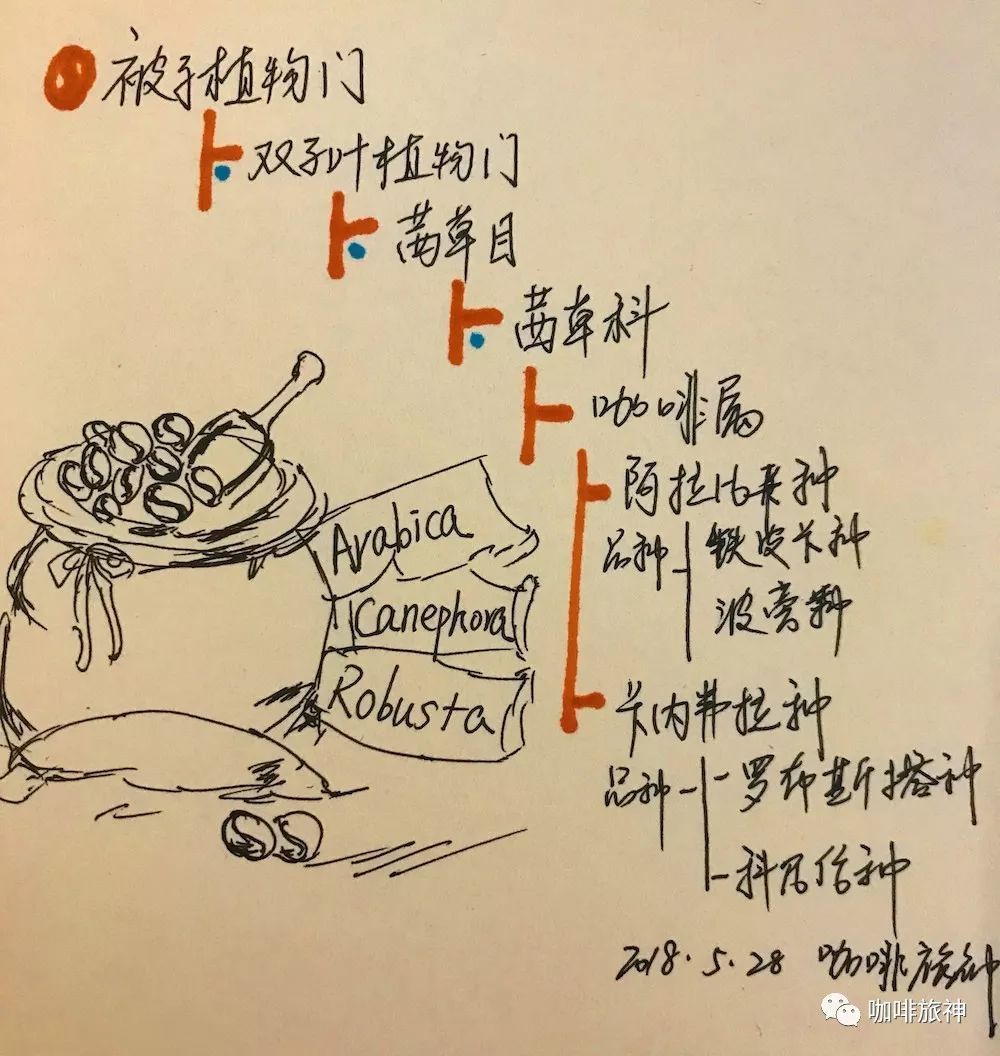 被子植物门
双子叶植物门
茜草目
茜草科
咖啡属
阿拉比卡种
品种
铁皮卡种
波旁种
Arabica
Canephora
Robusta
卡内弗拉种
品种
罗布斯塔种
科尼伦种
2018.5.28 咖啡旅神
咖啡旅神